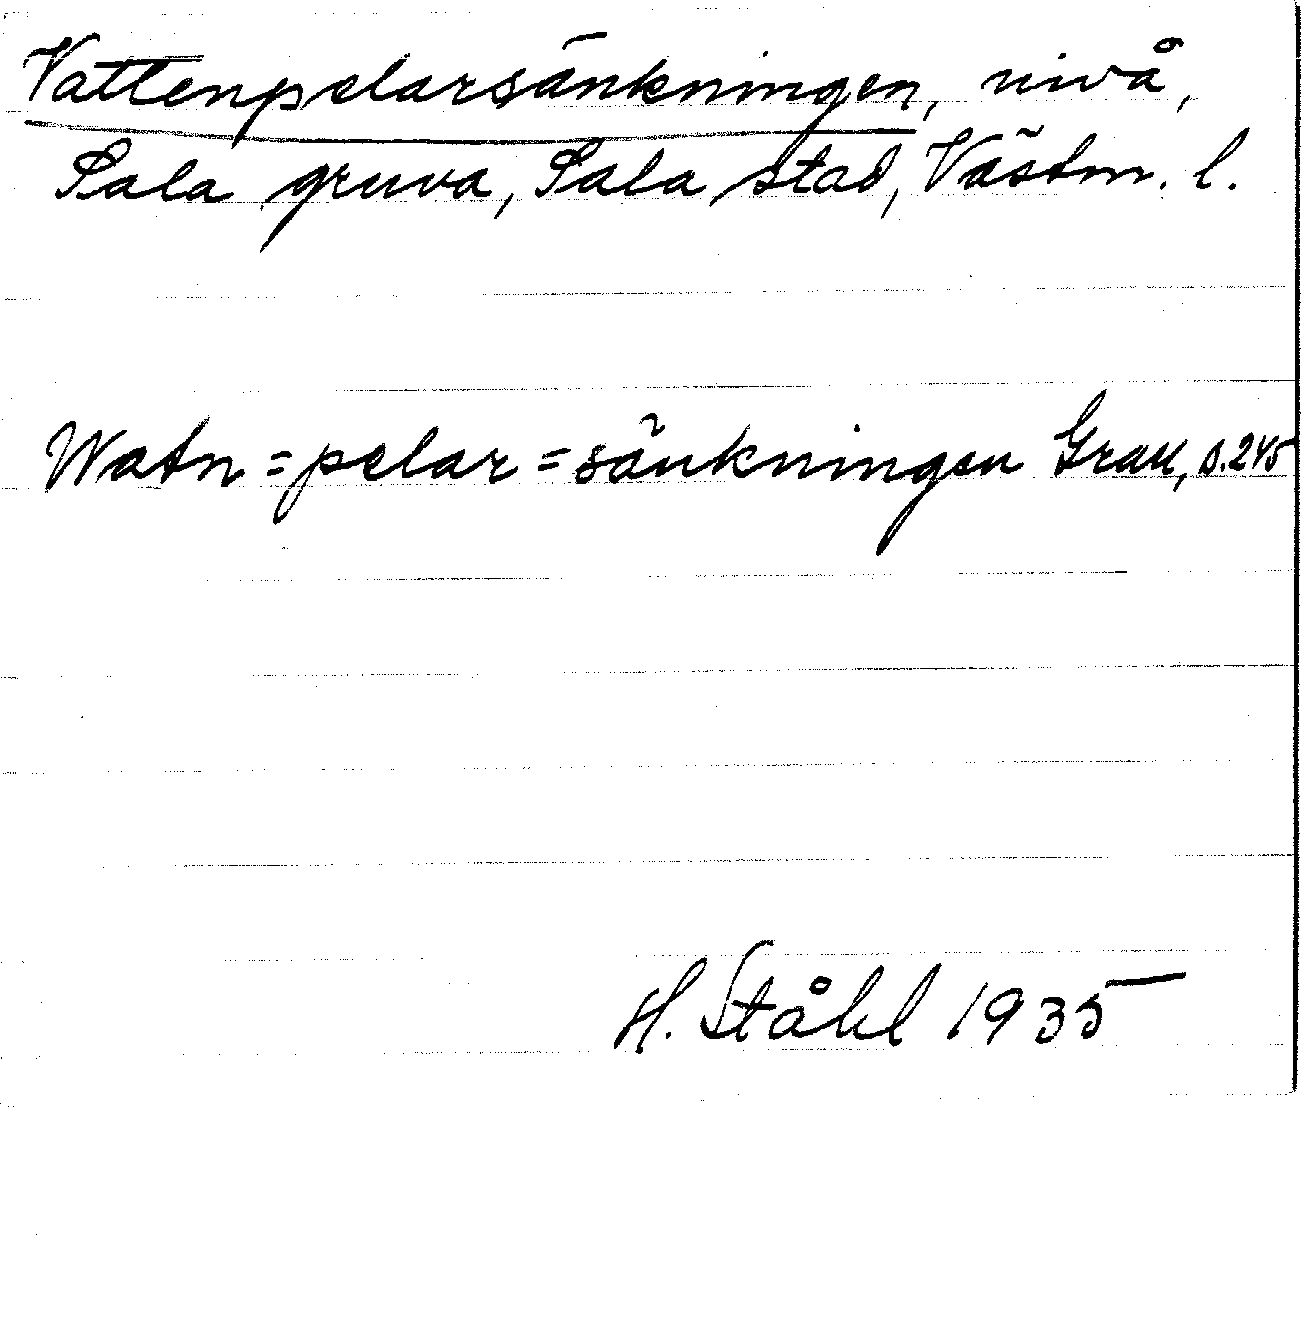 Vattenpelarsänkningen, nivå,
Sala gruva, Sala stad, Västm. l.
Watn=pelar=sänkningen Grau, s.245
H. Ståhl 1935